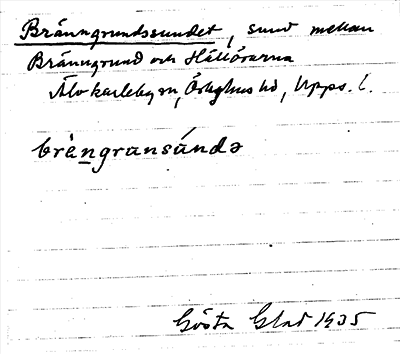 Bränngrundssundet, sund mellan
Bränngrund och Hällörarna
Älvkarleby sn, Örbyhus hd, Upps. l.
brèn̲gransúndə
Gösta Glad 1935